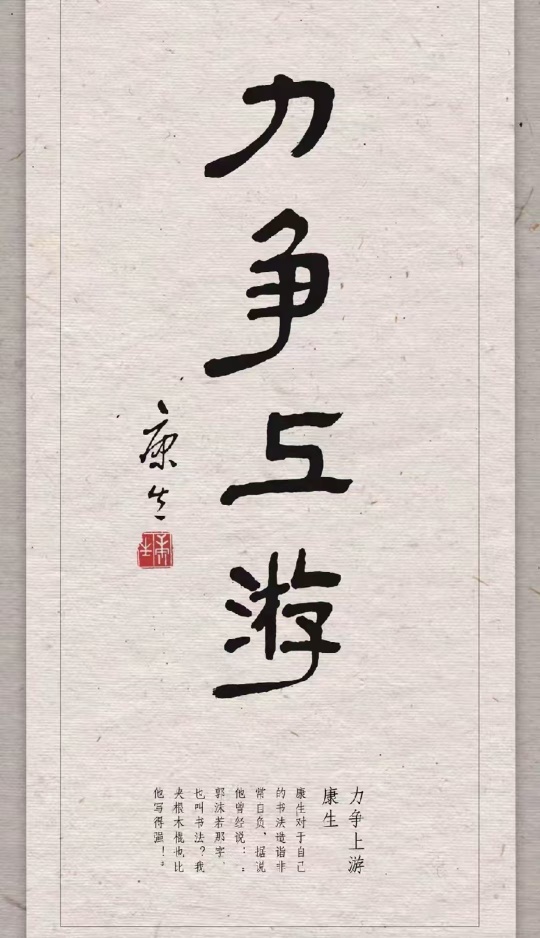 力争上游
康生
力争上游
康生
康生对于自己
的书法造诣非
常自负，据说
他曾经说：“
郭沫若那字，
也叫书法？我
夹根木棍也比
他写得强！”